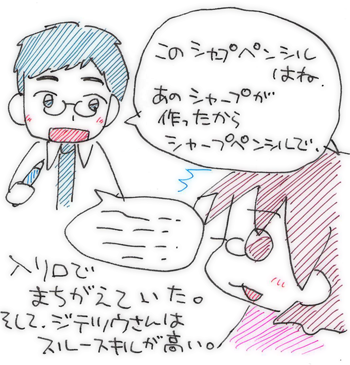 このシャープペンシル
はね。
あのシャープが
作ったから
シャープペンシルで、
入り口で
まちがえていた。
そして、ジテツウさんは
スルースキルが高い。